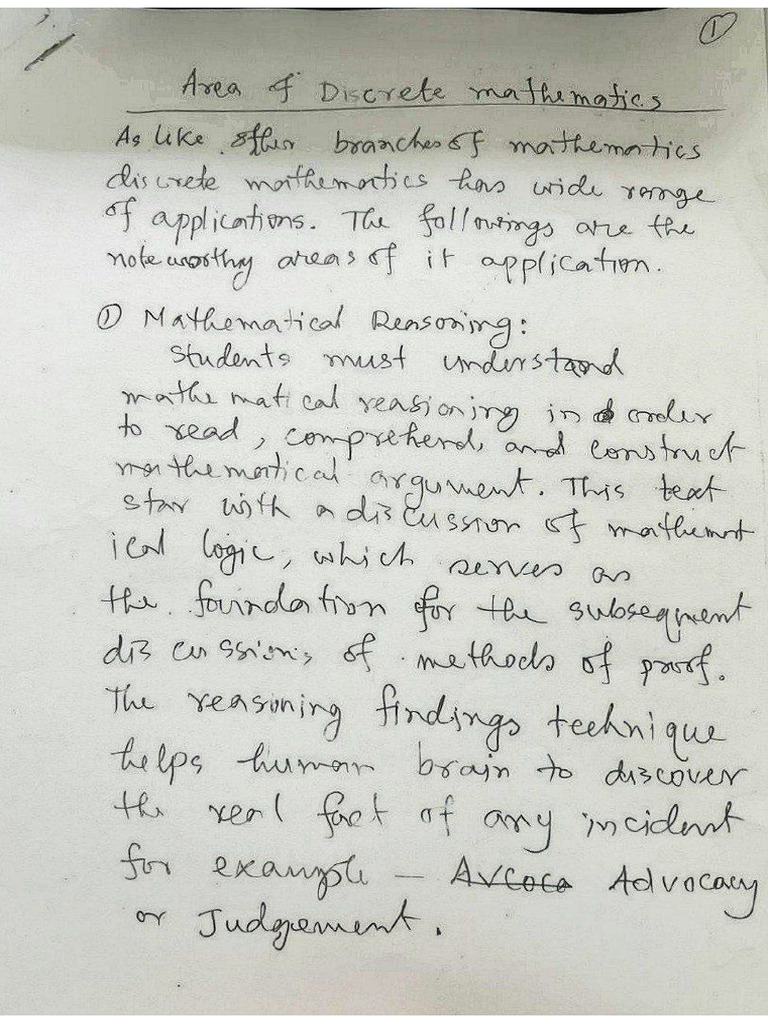 ①
Area of Discrete mathematics
As like other branches of mathematics
discrete mathematics has wide range
of applications. The followings are the
noteworthy areas of it application.
① Mathematical Reasoning:
Students must understand
mathematical reasioning in order
to read, comprehend, and construct
mathematical argument. This text
star with a discussion of mathemat
ical logic, which serves as
the foundation for the subsequent
discussions of methods of proof.
The reasoning findings technique
helps human brain to discover
the real fact of any incident
for example - Advocacy
or Judgement.